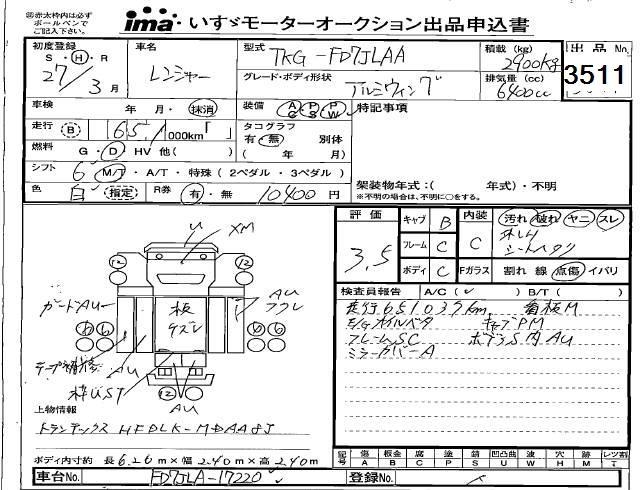 ㊟赤太枠内は必ず
ボールペンで
ご記入下さい。
ima いすゞモーターオークション出品申込書
初度登録
S・H・R
27 / 3月
車名
レンジャー
型式
TKG-FD7JLAA
積載(kg)
2900kg
グレード・ボディ形状
アルミウイング
排気量(cc)
6400cc
出品No.
3511
車検 年 月・抹消
装備 AC PS PW
特記事項
走行 B 1000km「 」
タコグラフ
有・無 別体
( 年 月)
燃料 G・D HV 他( )
シフト 6 M/T・A/T・特殊(2ペダル・3ペダル)
架装物年式:( 年式)・不明
※不明の場合は、不明に○をする。
色 白 指定 R券 有・無 10400円
評価
3.5
キャブ B
フレーム C
ボディ C
内装 C
汚れ 破れ ヤニ スレ
シートヘタリ
Fガラス 割れ 線 点傷 イバリ
検査員報告 A/C( ✓ ) B/T( )
走行651039km 看板M
E/gオイルバタ キャブPM
フレームSC ボデーS内AU
ミラーカバーA
U XM
12 12
ガードAU
板
ケズレ
AU
テープ補修
枠UST
12
AU
上物情報
トランテックス HFDLK-MDAA8J
ボディ内寸約 長6.20m×巾2.40m×高2.40m
記号 傷A 板金B 腐C 塗P 錆S 凹凸曲U 波W 穴H 跡M レツ割T
車台No. FD7JLA-17220
登録No.